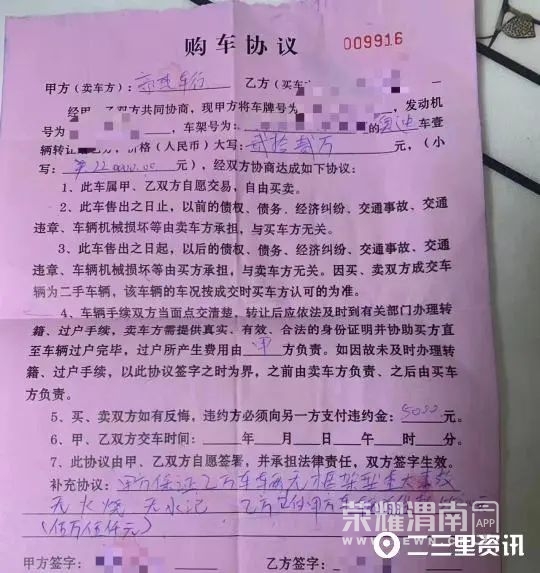 购车协议
009916
甲方（卖车方）： 车行 乙方（买车
经甲、乙双方共同协商，现甲方将车牌号为 ，发动机
号为 ，车架号为： 的 车壹
辆转让 乙方，价格（人民币）大写： 贰拾 万 元，（小
写： ），经双方协商达成如下协议：
1、此车属甲、乙双方自愿交易，自由买卖。
2、此车售出之日止，以前的债权、债务、经济纠纷、交通事故、交通
违章、车辆机械损坏等由卖车方承担，与买车方无关。
3、此车售出之日起，以后的债权、债务、经济纠纷、交通事故、交通
违章、车辆机械损坏等由买方承担，与卖车方无关。因买、卖双方成交车
辆为二手车辆，该车辆的车况按成交时买车方认可的为准。
4、车辆手续双方当面点交清楚，转让后应依法及时到有关部门办理转
籍、过户手续，卖车方需提供真实、有效、合法的身份证明并协助买方直
至车辆过户完毕，过户所产生费用由 甲 方负责。如因故未及时办理转
籍、过户手续，以此协议签字之时为界，之前由卖车方负责、之后由买车
方负责。
5、买、卖双方如有反悔，违约方必须向另一方支付违约金： 5000 元。
6、甲、乙双方交车时间： 年 月 日 午 时 分。
7、此协议由甲、乙双方自愿签署，并承担法律责任，双方签字生效。
补充协议： 甲方保证乙方车辆无 大事故
无火烧 无水泡 乙方
（伍万伍仟元）
甲方签字： 乙方签字：
荣耀渭南 APP
二三里资讯